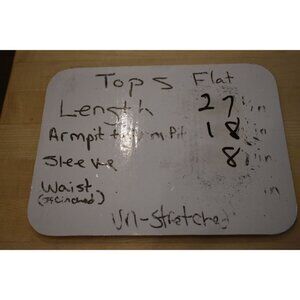 Tops Flat
Length 27 in
Armpit to Armpit 18 in
Sleeve 8 in
Waist in
(if cinched)
Un-stretched